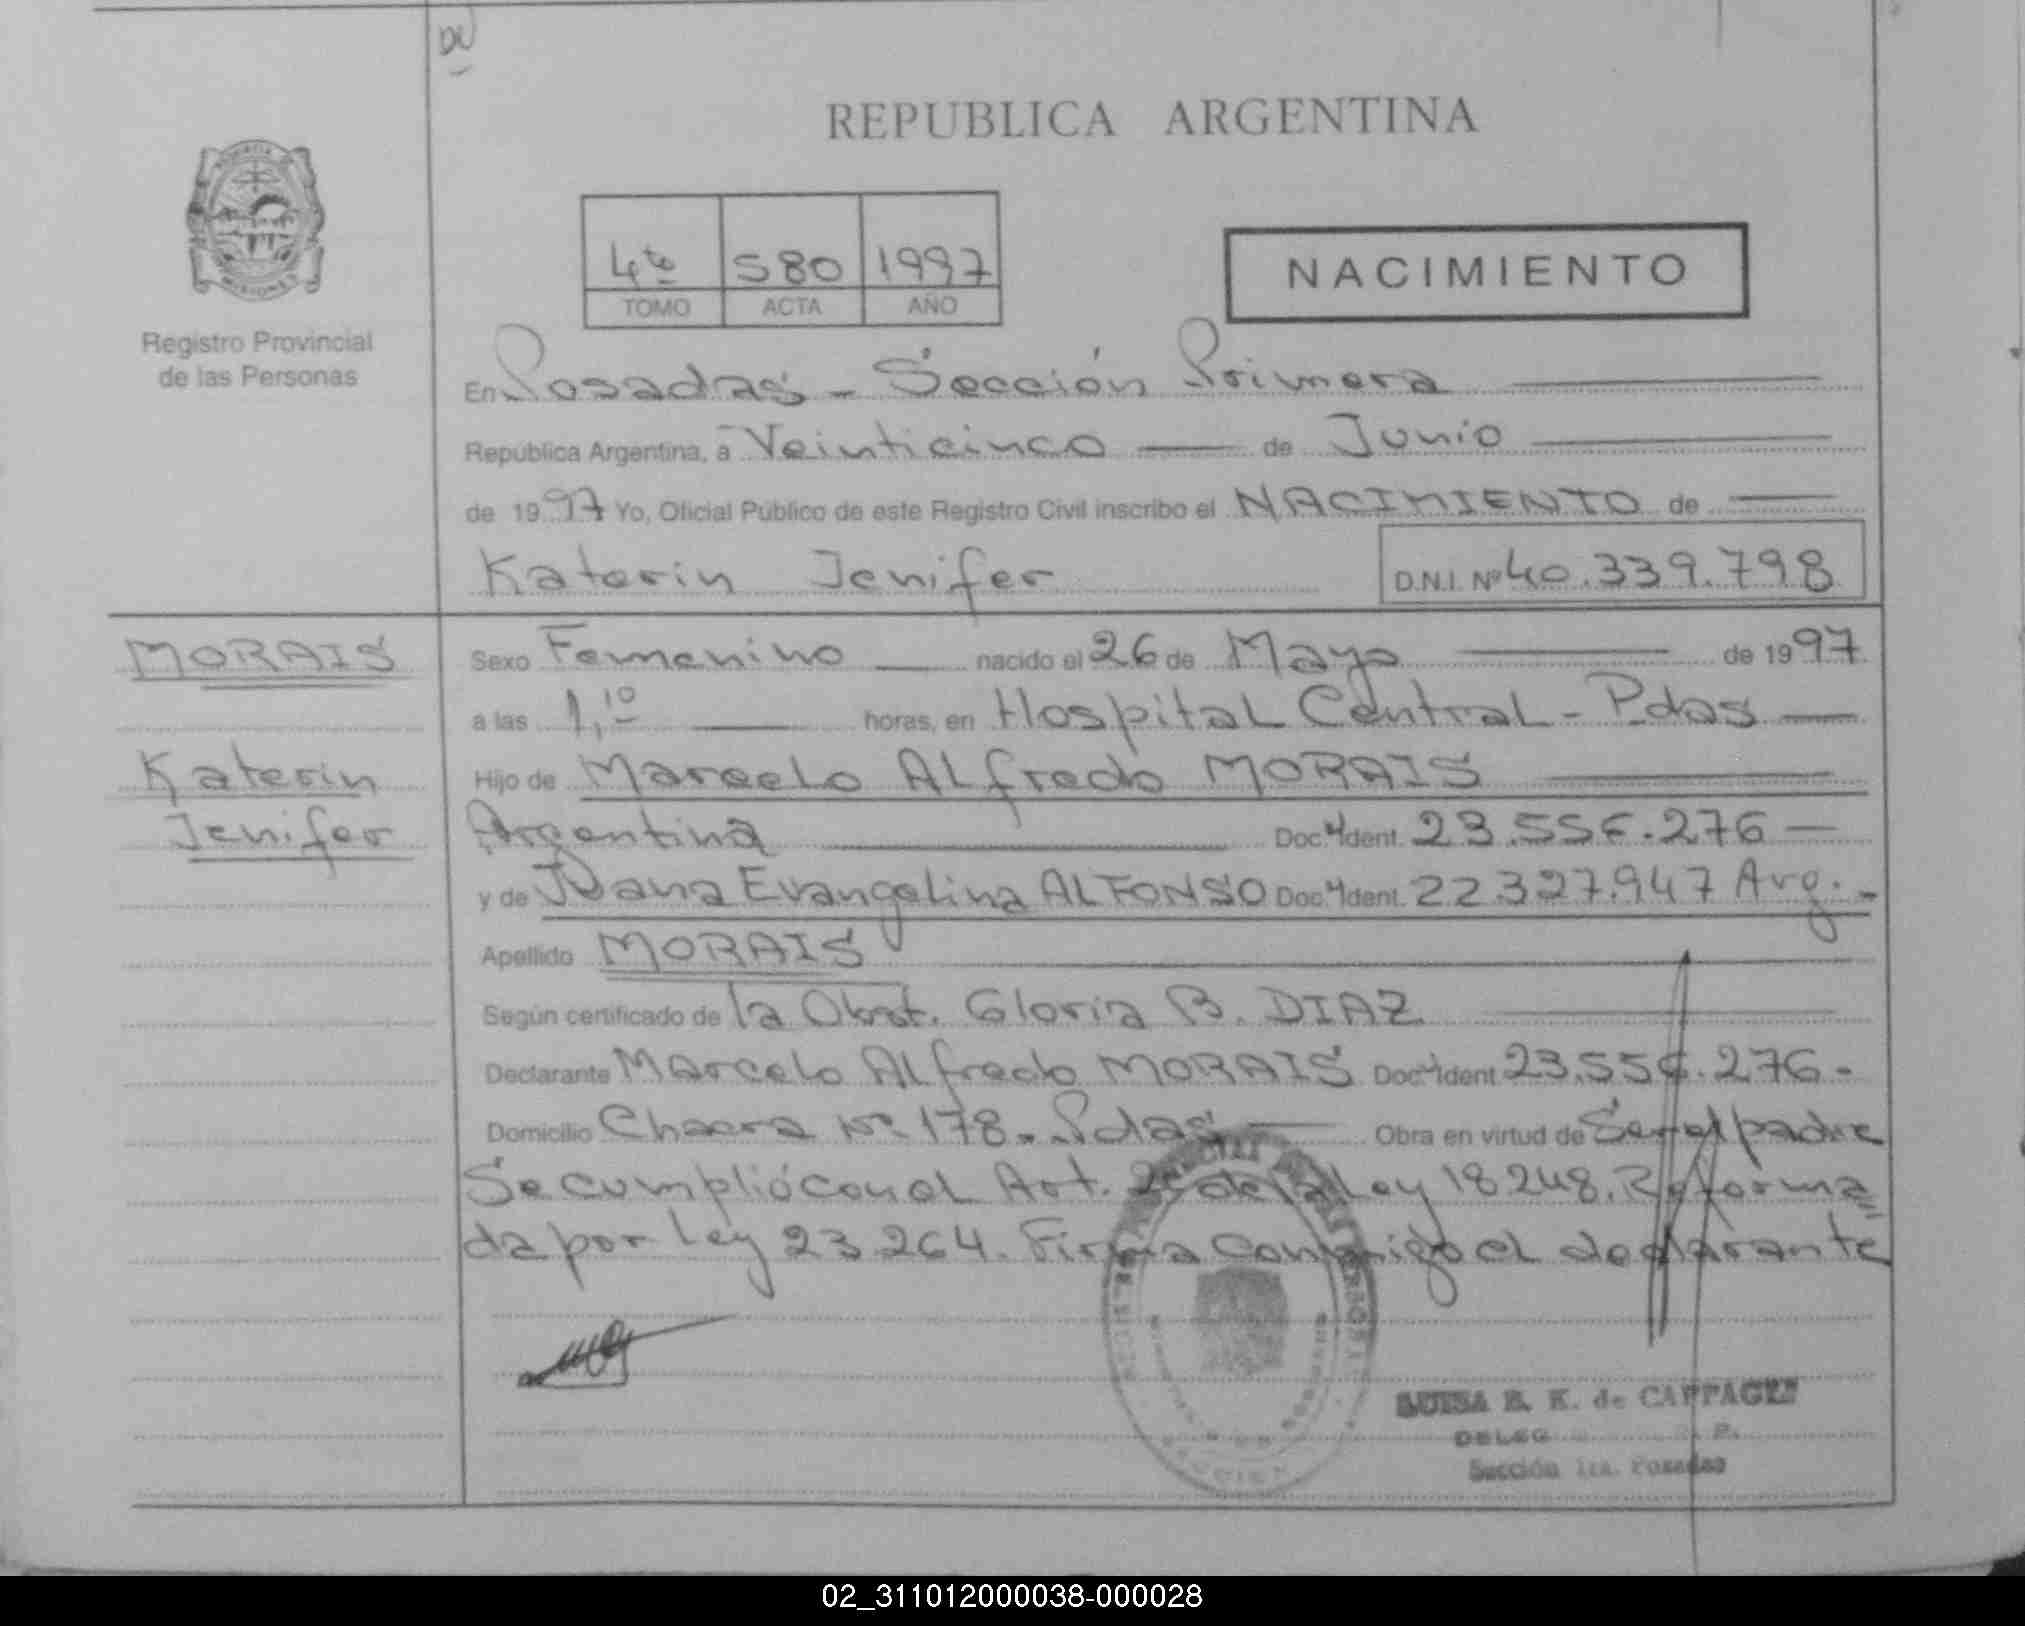 REPUBLICA ARGENTINA
PROVINCIA DE MISIONES
Registro Provincial
de las Personas
4to 580 1997
TOMO ACTA AÑO
NACIMIENTO
En Posadas - Sección Primera
República Argentina, a Veinticinco de Junio
de 1997 Yo, Oficial Público de este Registro Civil inscribo el NACIMIENTO de
Katerin Jenifer D.N.I. Nº 40.339.798
MORAIS
Katerin
Jenifer
Sexo Femenino nacido el 26 de Mayo de 1997
a las 1,10 horas, en Hospital Central - Pdas
Hijo de Marcelo Alfredo MORAIS
Argentina Doc. Ident. 23.556.276
y de Juana Evangelina ALFONSO Doc. Ident. 22.327.947 Arg.
Apellido MORAIS
Según certificado de la Obst. Gloria B. DIAZ
Declarante Marcelo Alfredo MORAIS Doc. Ident 23.556.276-
Domicilio Chacra Nº 178. Pdas Obra en virtud de Ser el padre
Se cumplió con el Art. 2º de la Ley 18248. Reforma=
da por Ley 23264. Firma conmigo el declarante
LUISA B. K. de
Sección 1ra. Posadas
02_311012000038-000028